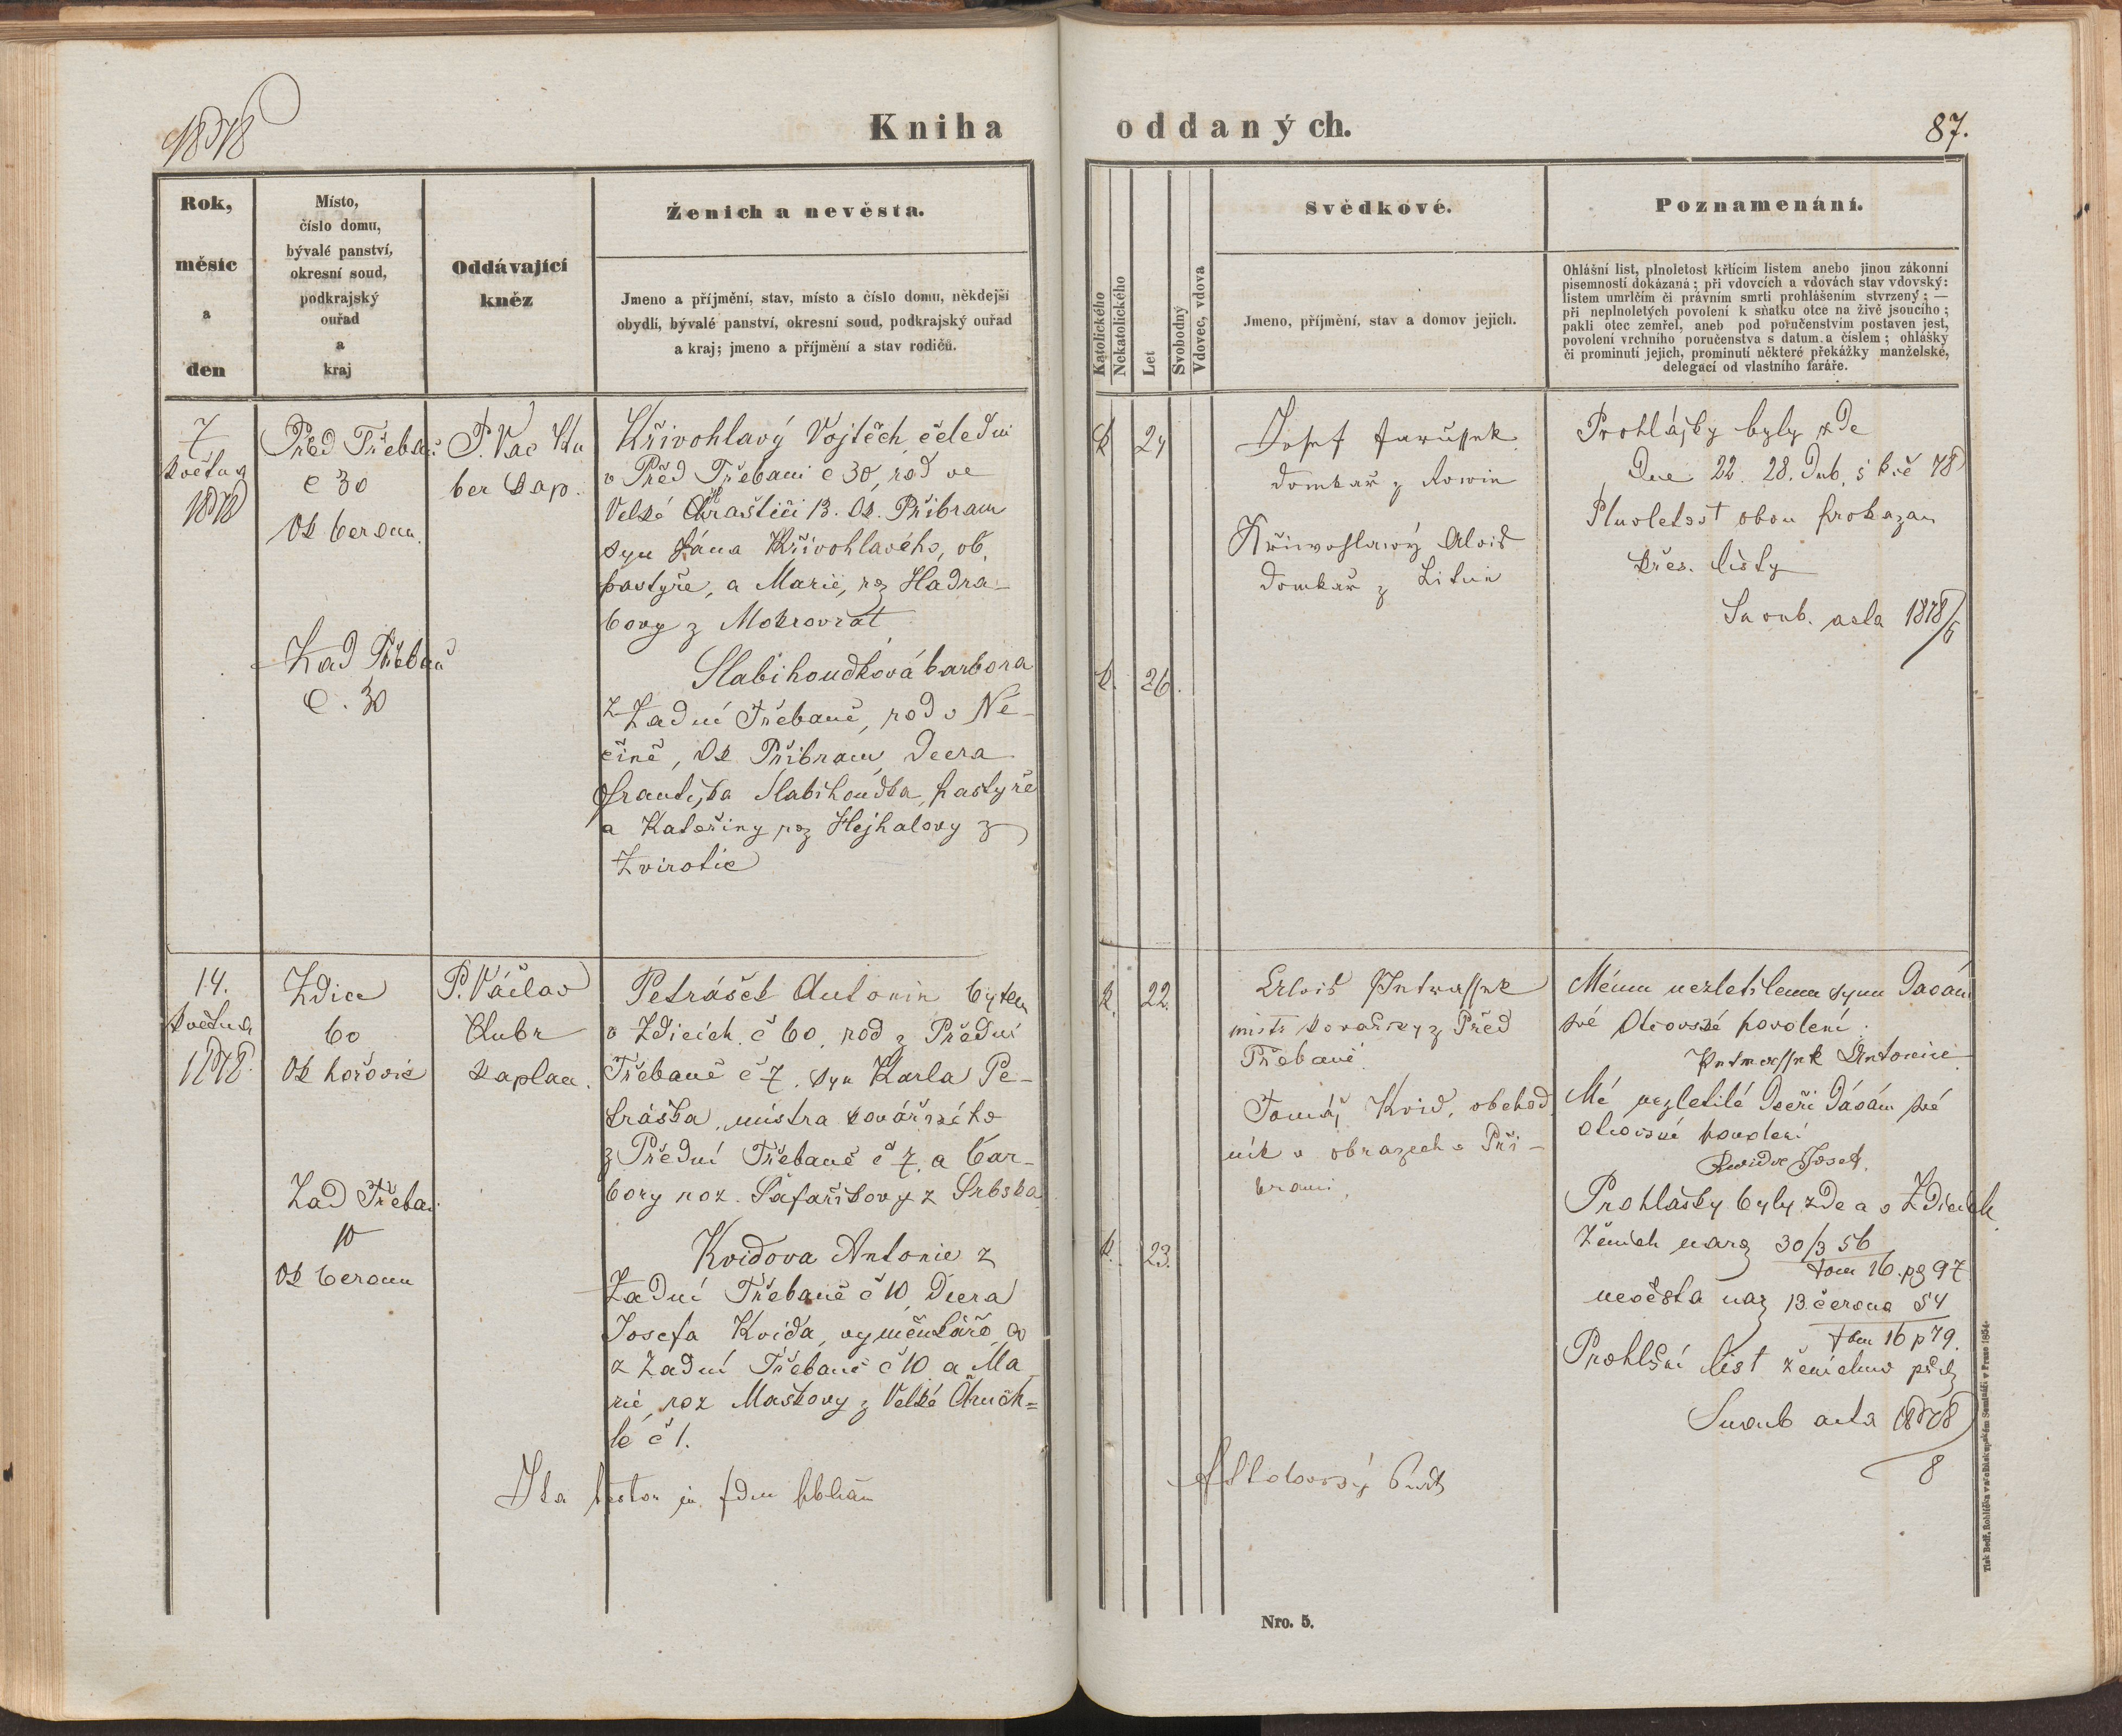 1878
Kniha oddaných.
87.
Rok,
měsíc
a
den
Místo,
číslo domu,
bývalé panství,
okresní soud,
podkrajský
ouřad
a
kraj
Oddávající
kněz
Ženich a nevěsta.
Jmeno a příjmění, stav, místo a číslo domu, někdejší
obydlí, bývalé panství, okresní soud, podkrajský ouřad
a kraj; jmeno a příjmění a stav rodičů.
Katolického
Nekatolického
Let
Svobodný
Vdovec, vdova
Svědkové.
Jmeno, příjmění, stav a domov jejich.
Poznamenání.
Ohlášní list, plnoletost křticím listem anebo jinou zákonní
písemností dokázaná; při vdovcích a vdovách stav vdovský:
listem umrlčím či právním smrti prohlášením stvrzený; —
při neplnoletých povolení k sňatku otce na živě jsoucího;
pakli otec zemřel, aneb pod poručenstvím postaven jest,
povolení vrchního poručenstva s datum. a číslem; ohlášky
či prominutí jejich, prominutí některé překážky manželské,
delegací od vlastního faráře.
7
května
1878
Před Třebaň
č 30
Ok beroun.
Zad Třebaň
č. 30
P. Vac Klu
ber kap.
Křivohlavý Vojtěch čeledín
v Před Třebani č 30, rod ve
Velké Chraštici 13. Ok. Příbram
syn Jána Křivohlavého, ob.
pastýře, a Marie, roz Hadra-
bovy z Mokrovrat
Slabihoudková barbora
z Zadní Třebaně, rod v Ne-
číně, Ok Příbram, dcera
Františka Slabihoudka, pastýře
a Kateřiny roz Hejhalovy z
Zvirotic
k 24
k. 26.
Josef
domkař z
Křiwohlawý Alois
domkař z Litně
Prohlášky byly zde
Dne 22. 28. Dub. 5 kvě 78
Plnoletost obou prokazan
křes. listy
Snoub. acta 1878/6
14.
května
1878.
Zdice
60
Ok hořovic
Zad Třebaň
10
Ok beroun
P. Václav
Klubr
kaplan.
Petrášek Antonín bytem
v Zdicích č 60, rod z Přední
Třebaně č 7. syn Karla Pe-
tráška, mistra kovářského
z Přední Třebaně č 7. a bar-
bory roz. Šafaříkovy z Srbska
Kvidova Antonie z
Zadní Třebaně č 10, dcera
Josefa Kvida, výměnkáře
z Zadní Třebaně č 10 a Ma
rie, roz Maškovy z Velké Chuch=
le č 1.
k. 22.
k. 23.
Alois Petrassek
mistr kovařsky z Před
Třebaně
Tomáš Kvid, obchod
ník v obrazech v Pří-
brami,
Mému nezletilemu synu davám
své otcovské povolení.
Petrassek Antonín
Mé nezletilé dceři dávám své
otcovské povolení
Kvida Josef.
Prohlašky byly zde a v Zdicích
Ženich naroz 30/3 56
tom 16. pg 97
nevěsta nar 13. června 54
tom 16 p 79.
Prohlšní list ženichuv přil
Snoub acta 1878
8
Ita testor in
Tisk Bedř. Rohlíčka v arcibiskupském Semináři v Praze 1854.
Nro. 5.